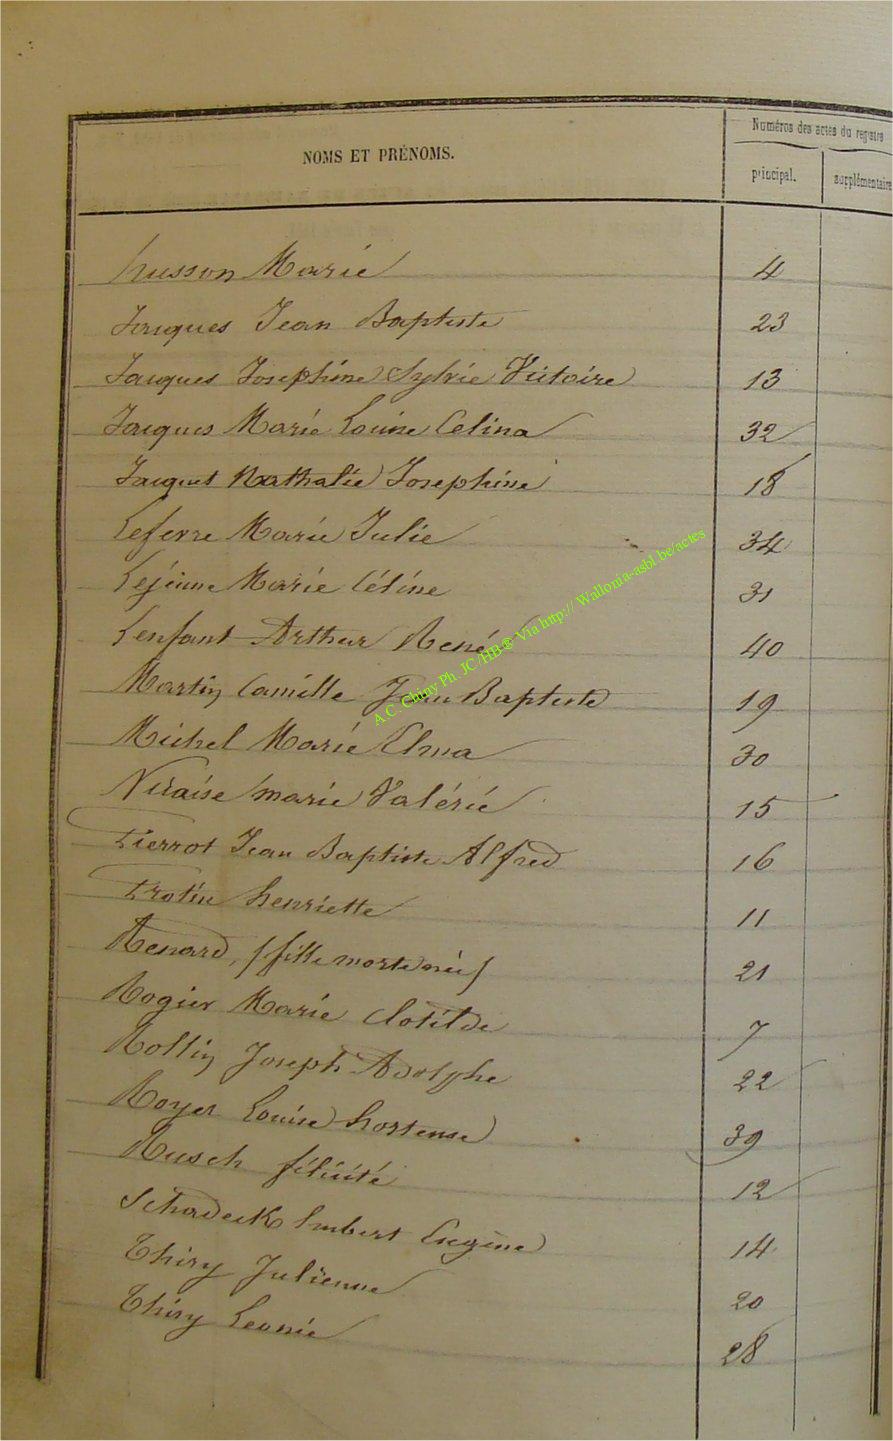 Numéros des actes du registre
NOMS ET PRÉNOMS.
principal. supplémentaire
husson Marie 4
Jacques Jean Baptiste 23
Jacques Josephine Sylvie Victoire 13
Jacques Marie Louise Celina 32
Jacquet Nathalie Josephine 18
Lefevre Marie Julie 34
Lejeune Marie Céline 31
Lenfant Arthur René 40
Martin Camille Jean Baptiste 19
Michel Marie Elma 30
Nicaise marie Valérie 15
Pierrot Jean Baptiste Alfred 16
Protin henriette 11
Renard, (fille mort née) 21
Rogier Marie Clotilde 7
Rollin Joseph Adolphe 22
Royer Louise hortense 39
Rusch félicité 12
Schadeck Imbert Eugène 14
Thiry Julienne 20
Thiry Leonie 28
A C Chiny Ph. JC /HB® Via http:// Wallonia-asbl.be/actes